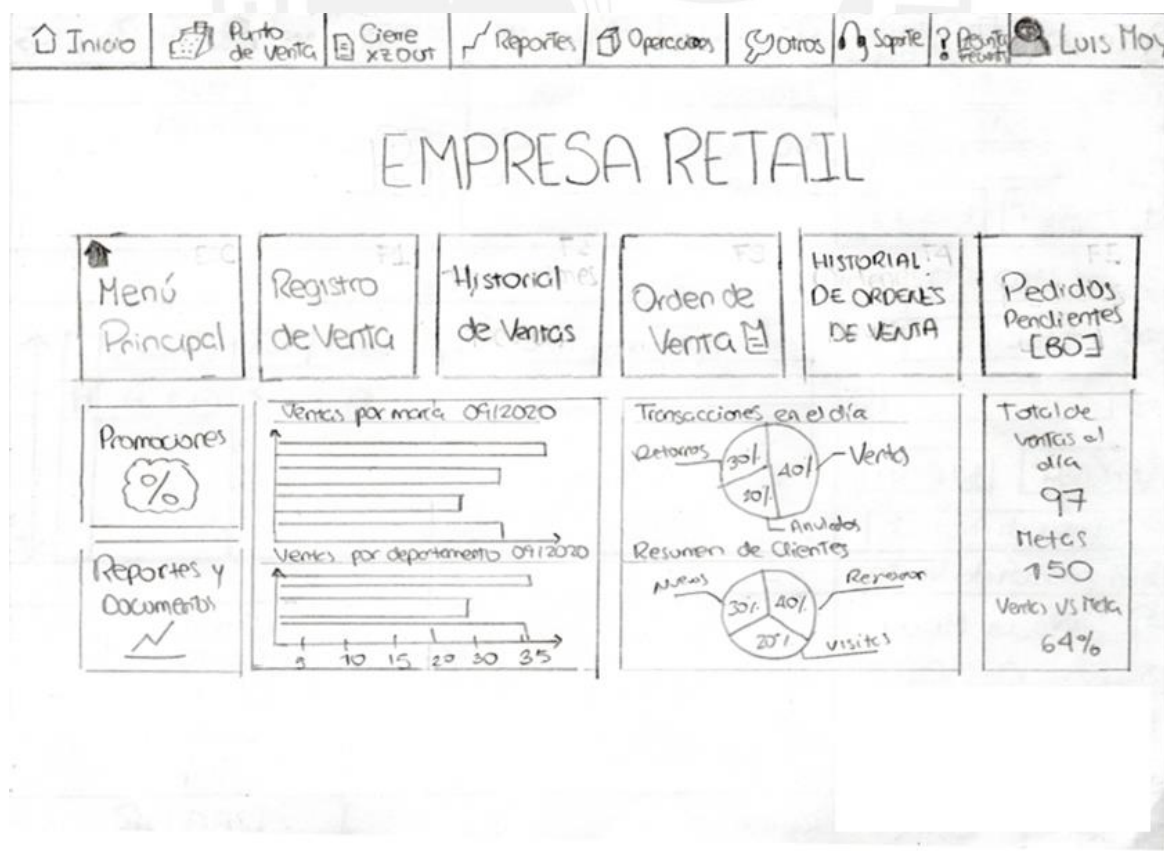 Inicio
Punto
de venta
Cierre
XZ OUT
Reportes
Operaciones
Otros
Soporte
?
Luis Moy
EMPRESA RETAIL
Menú
Principal
F1
Registro
de Venta
Historial
de Ventas
F3
Orden de
Venta
F4
HISTORIAL
DE ORDENES
DE VENTA
Pedidos
Pendientes
[BO]
Promociones
%
Reportes y
Documentos
Ventas por marca 09/2020
Ventas por departamento 09/2020
5 10 15 20 30 35
Transacciones en el día
Retornos
30%
40%
Ventas
20%
Anulados
Resumen de Clientes
Nuevos
30%
40%
20%
Visitas
Total de
ventas al
día
97
Metas
150
Ventas VS Meta
64%